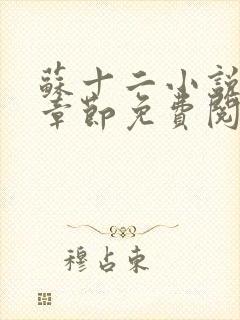 蘇十二小說
章節免費閱
穆占東